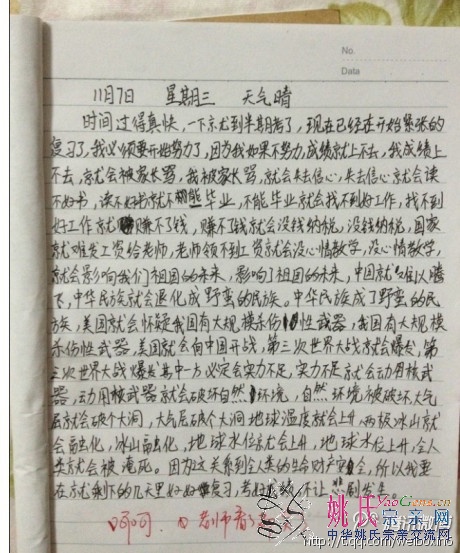 No.
Date
11月7日 星期三 天气晴
时间过得真快，一下就到半期考了，现在已经在开始紧张的
复习了，我必须要开始努力了，因为我如果不努力，成绩就上不去，我成绩上
不去，就会被家长骂，我被家长骂，就会失去信心，失去信心就会读
不好书，读不好书就不能毕业，不能毕业就会找不到好工作，找不到
好工作就赚不了钱，赚不了钱就会没钱纳税，没钱纳税，国家
就难发工资给老师，老师领不到工资就会没心情教学，没心情教学，
就会影响我们祖国的未来，影响了祖国的未来，中国就难以腾
飞，中华民族就会退化成野蛮的民族。中华民族成了野蛮的民
族，美国就会怀疑我国有大规模杀伤性武器，我国有大规模
杀伤性武器，美国就会向中国开战，第三次世界大战就会爆发，第
三次世界大战爆发其中一方必定会实力不足，实力不足就会动用核武
器，动用核武器就会破坏自然环境，自然环境被破坏大气
层就会破个大洞，大气层破个大洞地球温度就会上升，两极冰山就
会融化，冰山融化，地球水位就会上升，地球水位上升，全人
类就会被淹死。因为这关系到全人类的生命财产安全，所以我要
在就剩下的几天里好好复习，考好成绩，不让悲剧发生。
呵呵
老师看了
姚氏宗亲网
YaoGens.cn
中华姚氏宗亲交流网
腾讯微博
http://t.qq.com/weibolinfo